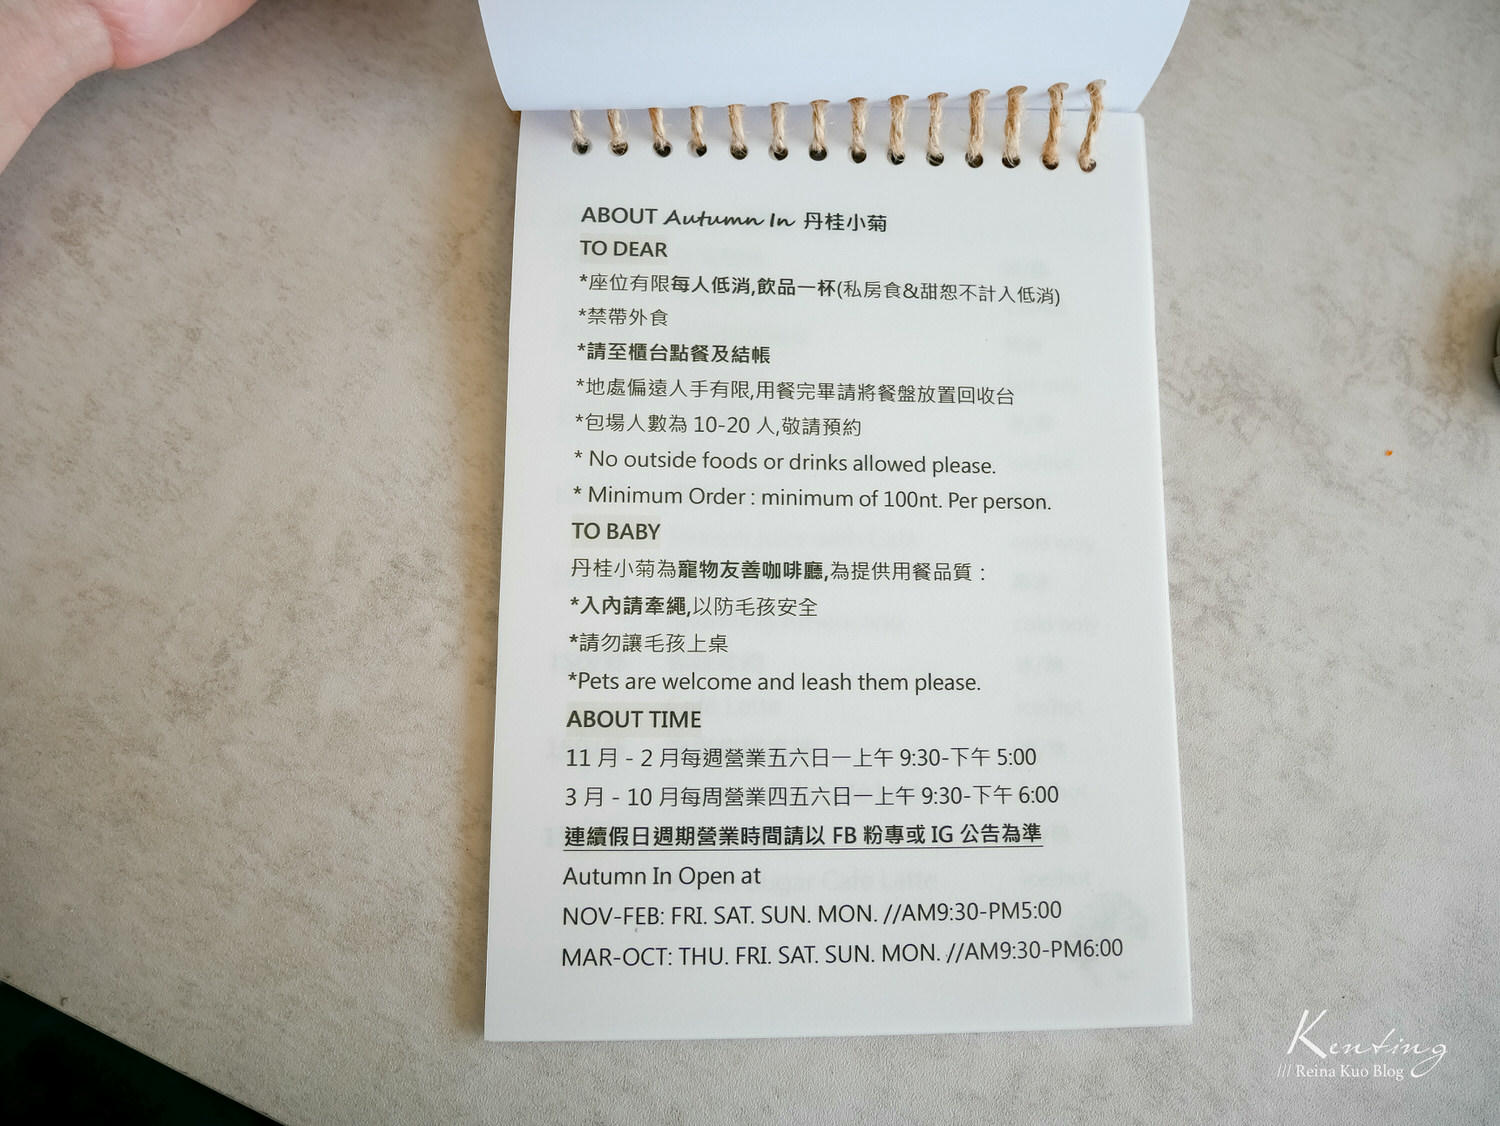 ABOUT Autumn In 丹桂小菊
TO DEAR
*座位有限每人低消,飲品一杯(私房食&甜恕不計入低消)
*禁帶外食
*請至櫃台點餐及結帳
*地處偏遠人手有限,用餐完畢請將餐盤放置回收台
*包場人數為 10-20 人,敬請預約
* No outside foods or drinks allowed please.
* Minimum Order : minimum of 100nt. Per person.
TO BABY
丹桂小菊為寵物友善咖啡廳,為提供用餐品質：
*入內請牽繩,以防毛孩安全
*請勿讓毛孩上桌
*Pets are welcome and leash them please.
ABOUT TIME
11 月 - 2 月每週營業五六日一上午 9:30-下午 5:00
3 月 - 10 月每周營業四五六日一上午 9:30-下午 6:00
連續假日週期營業時間請以 FB 粉專或 IG 公告為準
Autumn In Open at
NOV-FEB: FRI. SAT. SUN. MON. //AM9:30-PM5:00
MAR-OCT: THU. FRI. SAT. SUN. MON. //AM9:30-PM6:00
Kenting
/// Reina Kuo Blog